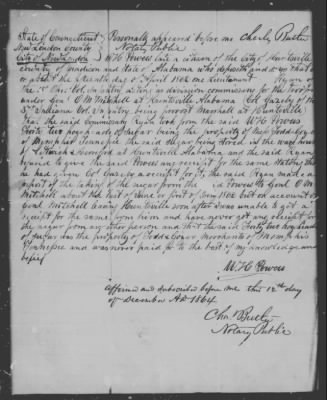 State of Connecticut
New London County
City of New London
Personally appeared before me Charles Butler
Notary Public
W H Powers late a citizen of the City of Huntsville
County of Madison and State of Alabama who deposeth and says that
or about the day of April 1862 one Lieutenant Ryan of
the Ohio Vol Infantry acting as division commissary for the
under Genl O M Mitchell at Huntsville Alabama Col Gazley of the
37 Indiana Vol Infantry being provost Marshall at Huntsville
that the said Commissary Ryan took from the said W H Powers
Forty two hogsheads of sugar being the property of
of Memphis Tennessee the said sugar being stored in the
of at Huntsville Alabama and the said Ryan
refused to give the said Powers any receipt for the same stating that
he had given Col Gazley a receipt for it, the said Ryan made a
report of the taking of the sugar from the said Powers to Genl O M
Mitchell about the last of June or first of 1862 but on account of
Genl Mitchell leaving Huntsville soon after was unable to get a
receipt for the same from him and have never got any receipt for
the sugar from any other person and that the said Forty two hogsheads
of sugar was the property of Merchants of Memphis
Tennessee and was never paid for to the best of my knowledge and
belief
W. H. Powers
Affirmed and subscribed before me this 12th day
of December AD 1864.
Chas Butler
Notary Public